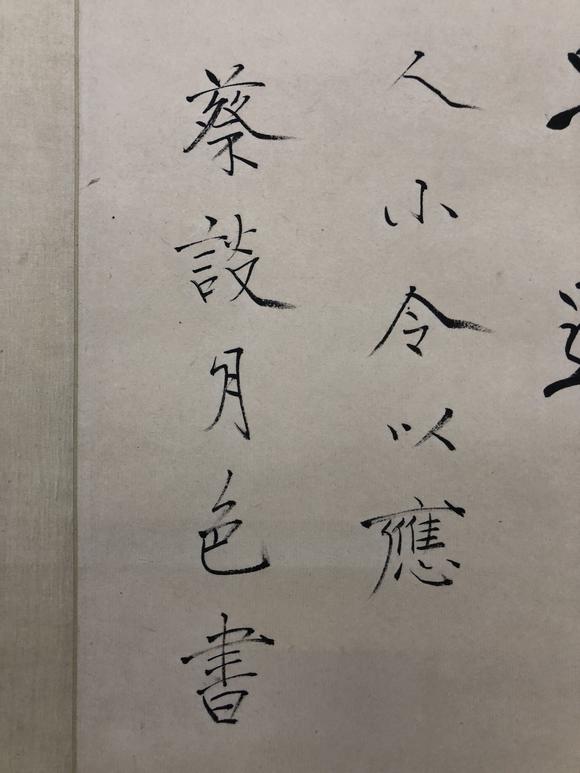 人小令以應
蔡談月色書